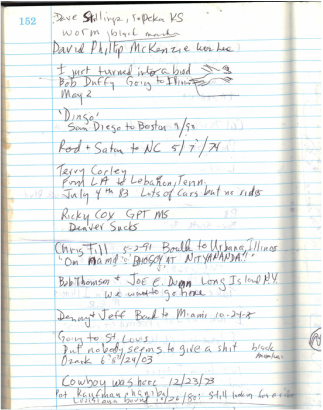 152
Dave Stillings, Topeka KS
worm, black
David Phillip McKenzie was here
I just turned into a bird
Bob Duffy Going to Illinois
May 2
'Dingo'
San Diego to Boston 9/
Rod + Satan to NC 5/7/74
Terry Corley
From LA to Lebanon, Tenn,
July 4th 83 Lots of Cars but no rides
Ricky Cox GPT MS
Denver Sucks
Chris Till 5-2-91 Boulder to Urbana, Illinois
"On Namo BHAGAVAT NITYANANDA!"
Bob Thomson + JOE E. Long Island N.Y.
We want to go home
Denny + Jeff Back to Miami 10-24-8
Going to St. Louis
But nobody seems to give a shit black
Ozark 6/24/03
Cowboy was here 12/23/73
Pat Kaufman
Louisiana bound 10/26/80: Still looking for a